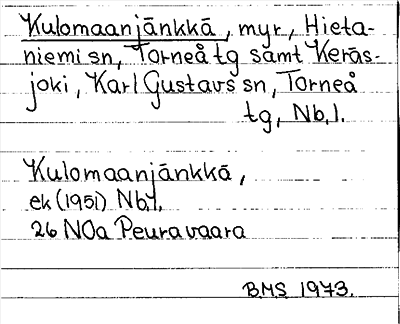 Kulomaanjänkkä, myr, Hieta-
niemi sn, Torneå tg samt Keräs-
joki, Karl Gustavs sn, Torneå
tg, Nb.l.
Kulomaanjänkkä,
ek (1951) Nb.l.
26 NOa Peuravaara
BMS 1973.